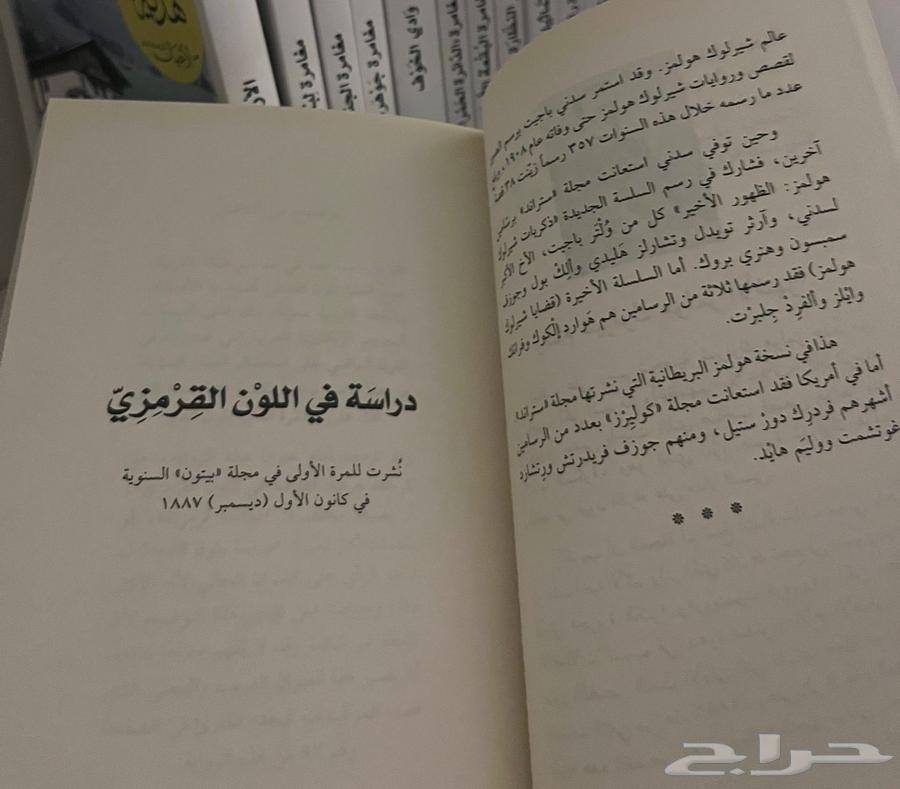 عالم شيرلوك هولمز. وقد استمر سدني باجيت برسم
لقصص وروايات شيرلوك هولمز حتى وفاته عام ١٩٠٨،
عدد ما رسمه خلال هذه السنوات ٣٥٧ رسماً زيّنت ٣٨ قصة
وحين توفي سدني استعانت مجلة «ستراند» برسّامين
آخرين، فشارك في رسم السلسة الجديدة «ذكريات شيرلوك
هولمز: الظهور الأخير» كل من وُلْتَر باجيت، الأخ الأكبر
لسدني، وآرثر تويدل وتشارلز هَليدي وألِكْ بول وجوزف
سمبسون وهنري بروك. أما السلسلة الأخيرة (قضايا شيرلوك
هولمز) فقد رسمها ثلاثة من الرسامين هم هَوارد إلْكوك وفرانك
وايْلز وألفرِدْ جِلبرْت.
هذا في نسخة هولمز البريطانية التي نشرتها مجلة «ستراند».
أما في أمريكا فقد استعانت مجلة «كوليِرْز» بعدد من الرسامين
أشهرهم فردرِك دورْ ستيل، ومنهم جوزف فريدرتش ورتشارد
غوتشمت ووليَم هايْد.
* * *
دراسَة في اللوْن القِرْمِزِيّ
نُشرت للمرة الأولى في مجلة «بيتون» السنوية
في كانون الأول (ديسمبر) ١٨٨٧
وادي الخوف
حراج